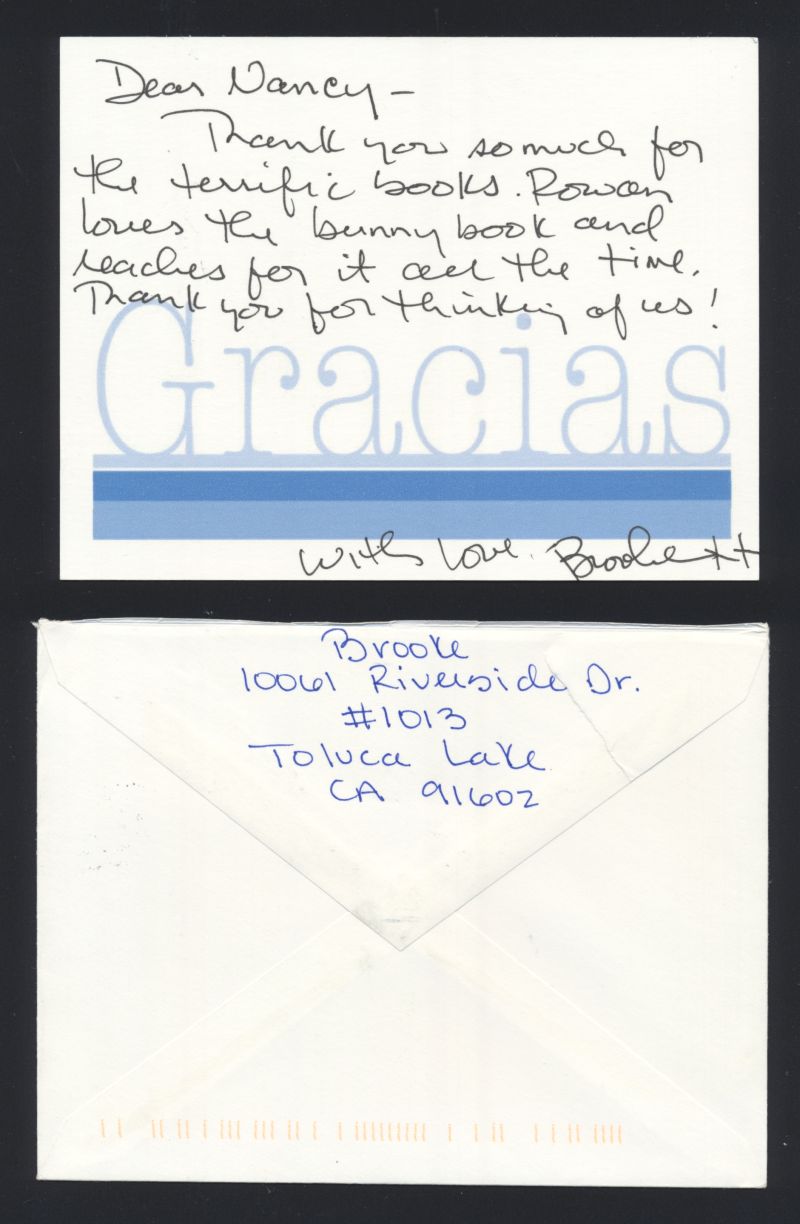 Dear Nancy —
Thank you so much for
the terrific books. Rowan
loves the bunny book and
reaches for it all the time.
Thank you for thinking of us!
Gracias
with love. Brooke
Brooke
10061 Riverside Dr.
#1013
Toluca Lake
CA 91602